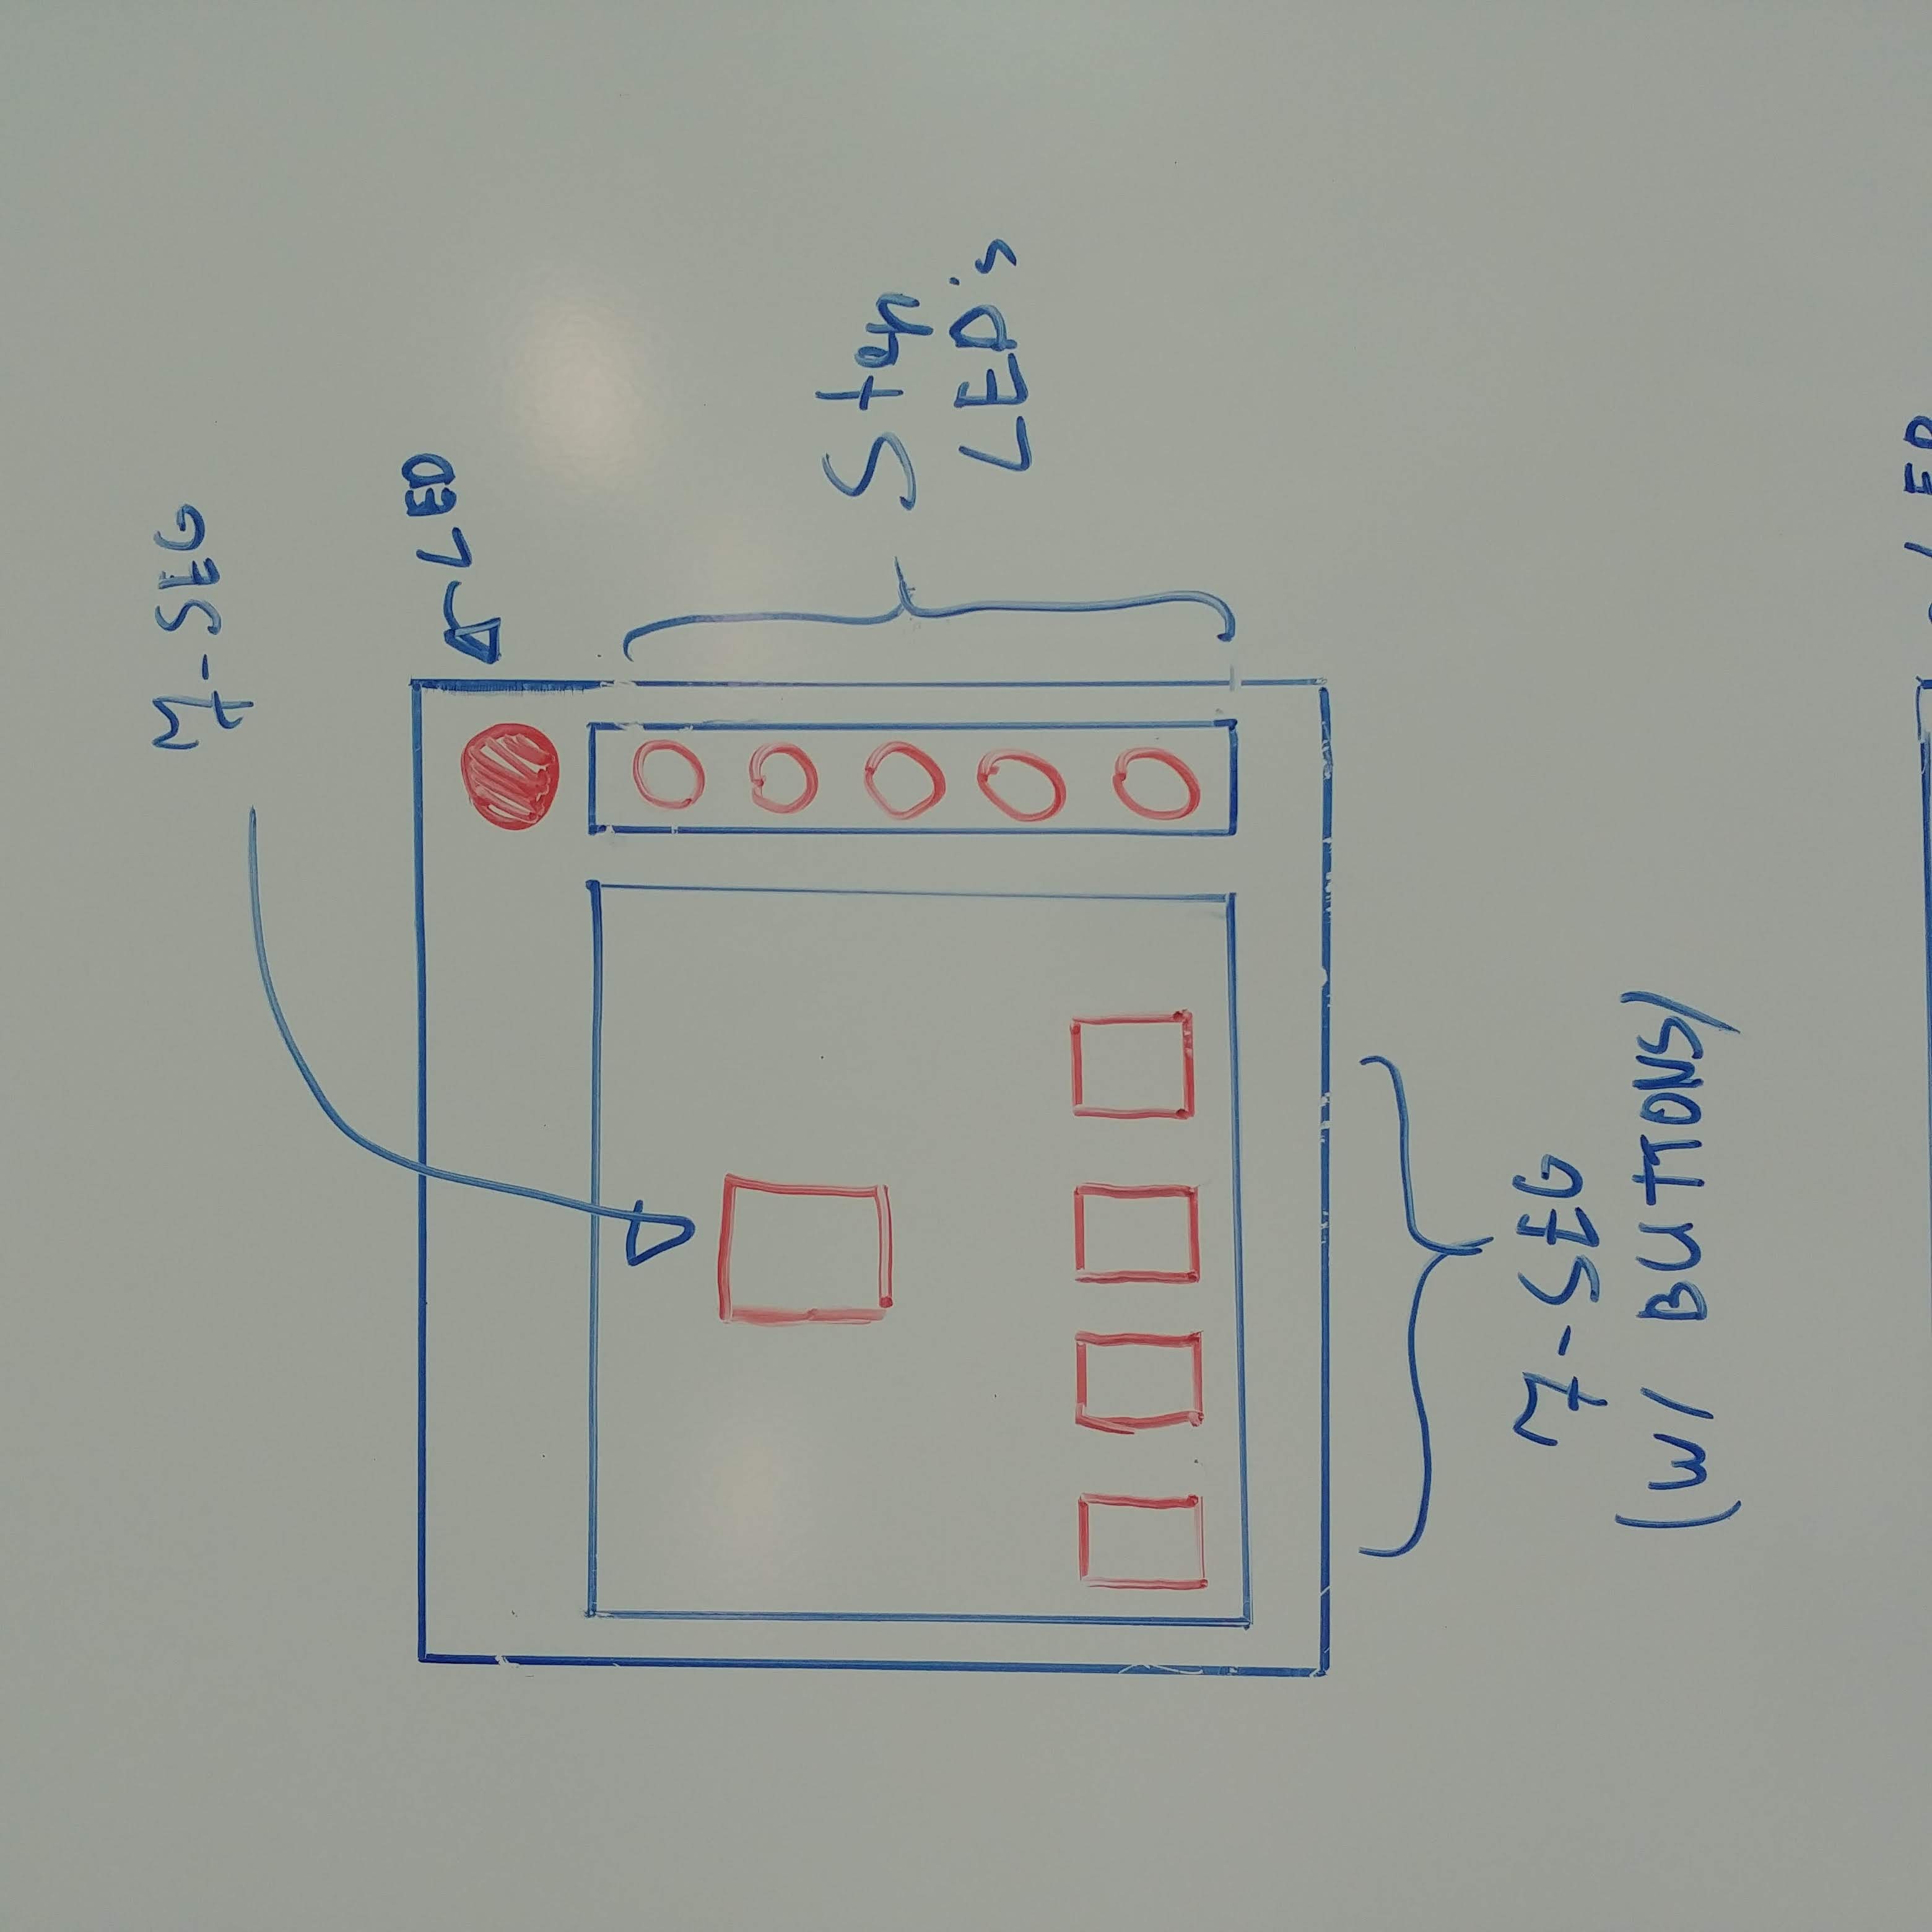 7-SEG
LED
Step
LED's
7-SEG
(W/ BUTTONS)
LED